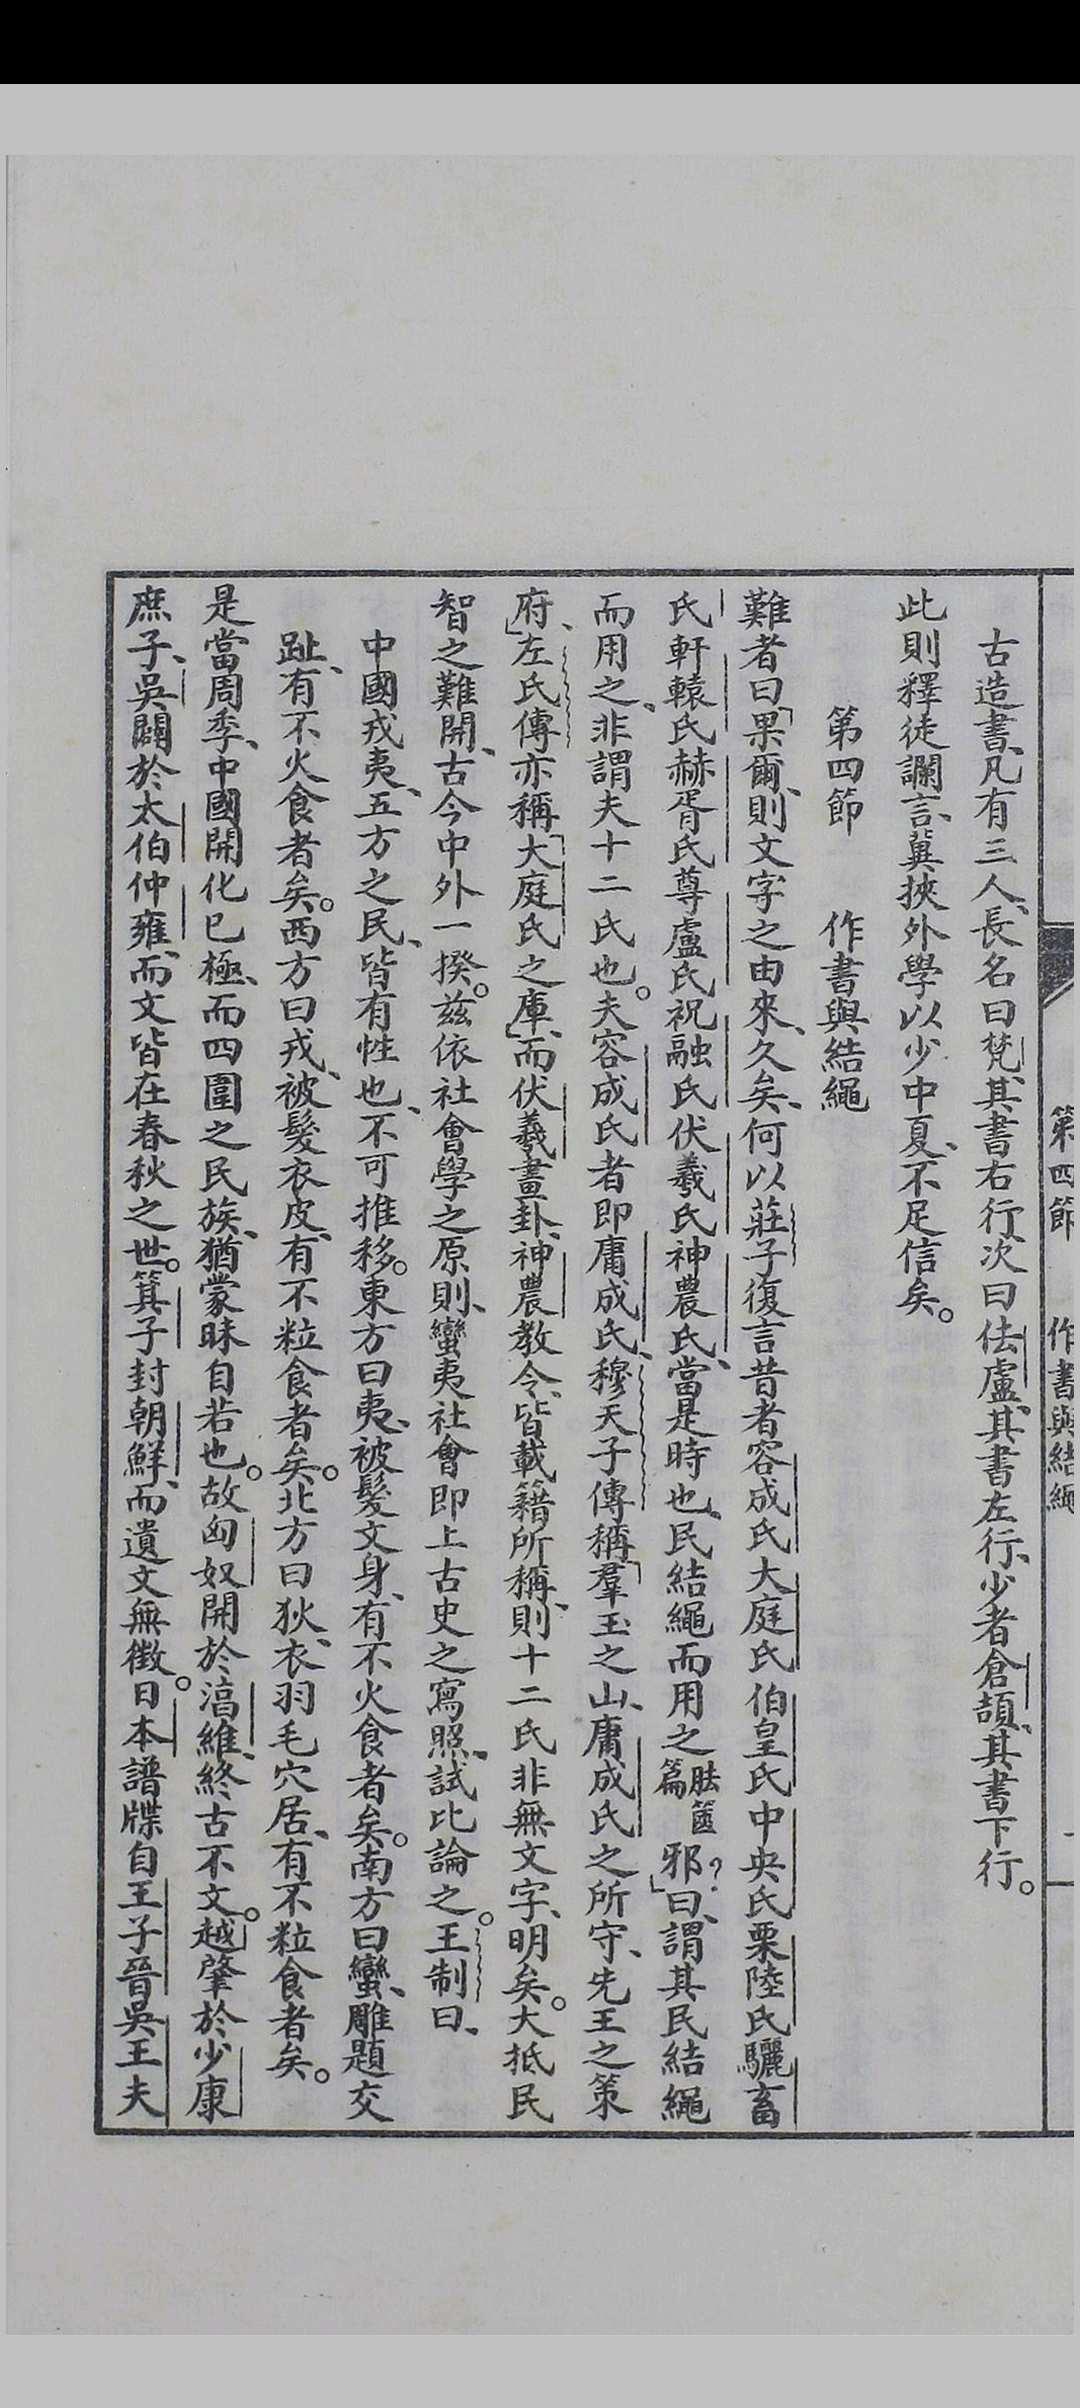 第四節 作書與結繩
古造書、凡有三人、長名曰梵、其書右行、次曰佉盧、其書左行、少者倉頡、其書下行。
此則釋徒讕言、冀挾外學以少中夏、不足信矣。
第四節 作書與結繩
難者曰、「果爾、則文字之由來、久矣、何以莊子復言昔者容成氏大庭氏伯皇氏中央氏栗陸氏驪畜
氏軒轅氏赫胥氏尊盧氏祝融氏伏羲氏神農氏、當是時也、民結繩而用之胠篋篇邪？」曰、謂其民結繩
而用之、非謂夫十二氏也。夫容成氏者即庸成氏、穆天子傳稱「羣玉之山、庸成氏之所守、先王之策
府、」左氏傳亦稱「大庭氏之庫、」而伏羲畫卦、神農教令、皆載籍所稱、則十二氏非無文字、明矣。大抵民
智之難開、古今中外一揆。茲依社會學之原則、蠻夷社會即上古史之寫照、試比論之。王制曰、
中國戎夷、五方之民、皆有性也、不可推移。東方曰夷、被髮文身、有不火食者矣。南方曰蠻、雕題交
趾、有不火食者矣。西方曰戎、被髮衣皮、有不粒食者矣。北方曰狄、衣羽毛穴居、有不粒食者矣。
是當周季、中國開化已極、而四圍之民族、猶蒙昧自若也。故匈奴開於湻維、終古不文。越肇於少康
庶子、吳闢於太伯仲雍、而文皆在春秋之世。箕子封朝鮮、而遺文無徵。日本譜牒自王子晉吳王夫